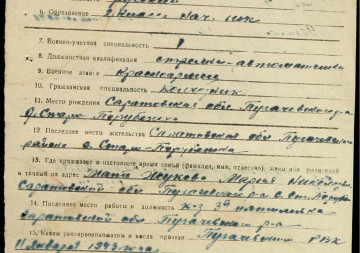 6. Образование 2 класса нач. шк
7. Военно-учетная специальность 1
8. Должностная квалификация стрелок-автоматчик
9. Военное звание красноармеец
10. Гражданская специальность колхозник
11. Место рождения Саратовская обл Пугачевский р-н
с. Стар-Порубежка
12. Последнее место жительства Саратовская обл Пугачевский
район с. Стар-Порубежка
13. Где проживает в настоящее время семья (фамилия, имя, отчество) жены или родителей
и точный их адрес Жукова Мария
Саратовская обл Пугачевский р-н с. Ст. Порубежка
14. Последнее место работы и должность к-з 2я пятилетка
Саратовской обл Пугачевского р-а
15. Каким райгорвоенкоматом и когда призван Пугачевским РВК
11 января 1943 года